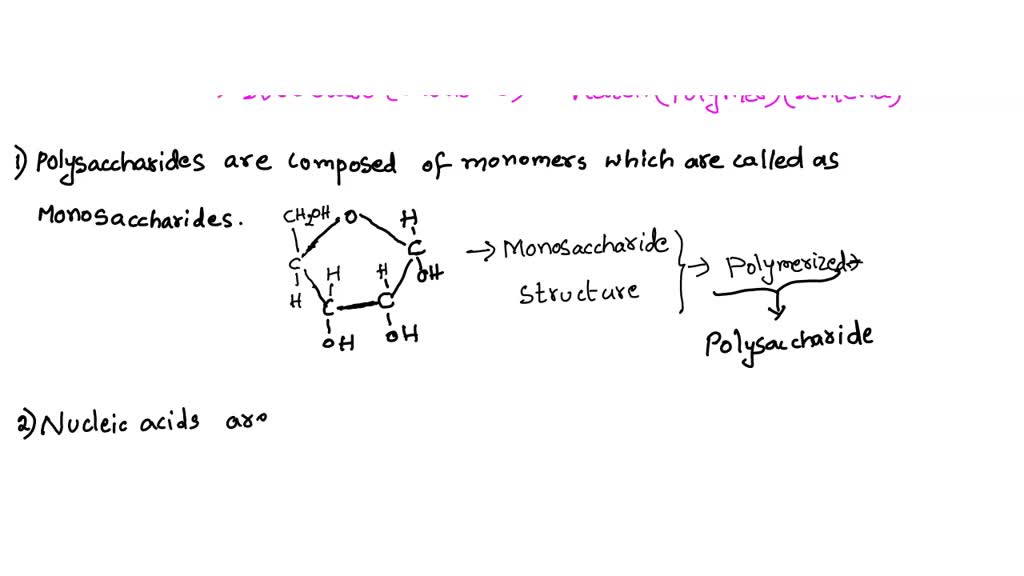 1) Polysaccharides are composed of monomers which are called as
Monosaccharides.
CH2OH O H
C C
OH
H H H
C C
OH OH
→ Monosaccharide
structure
→ Polymerized
Polysaccharide
2) Nucleic acids are